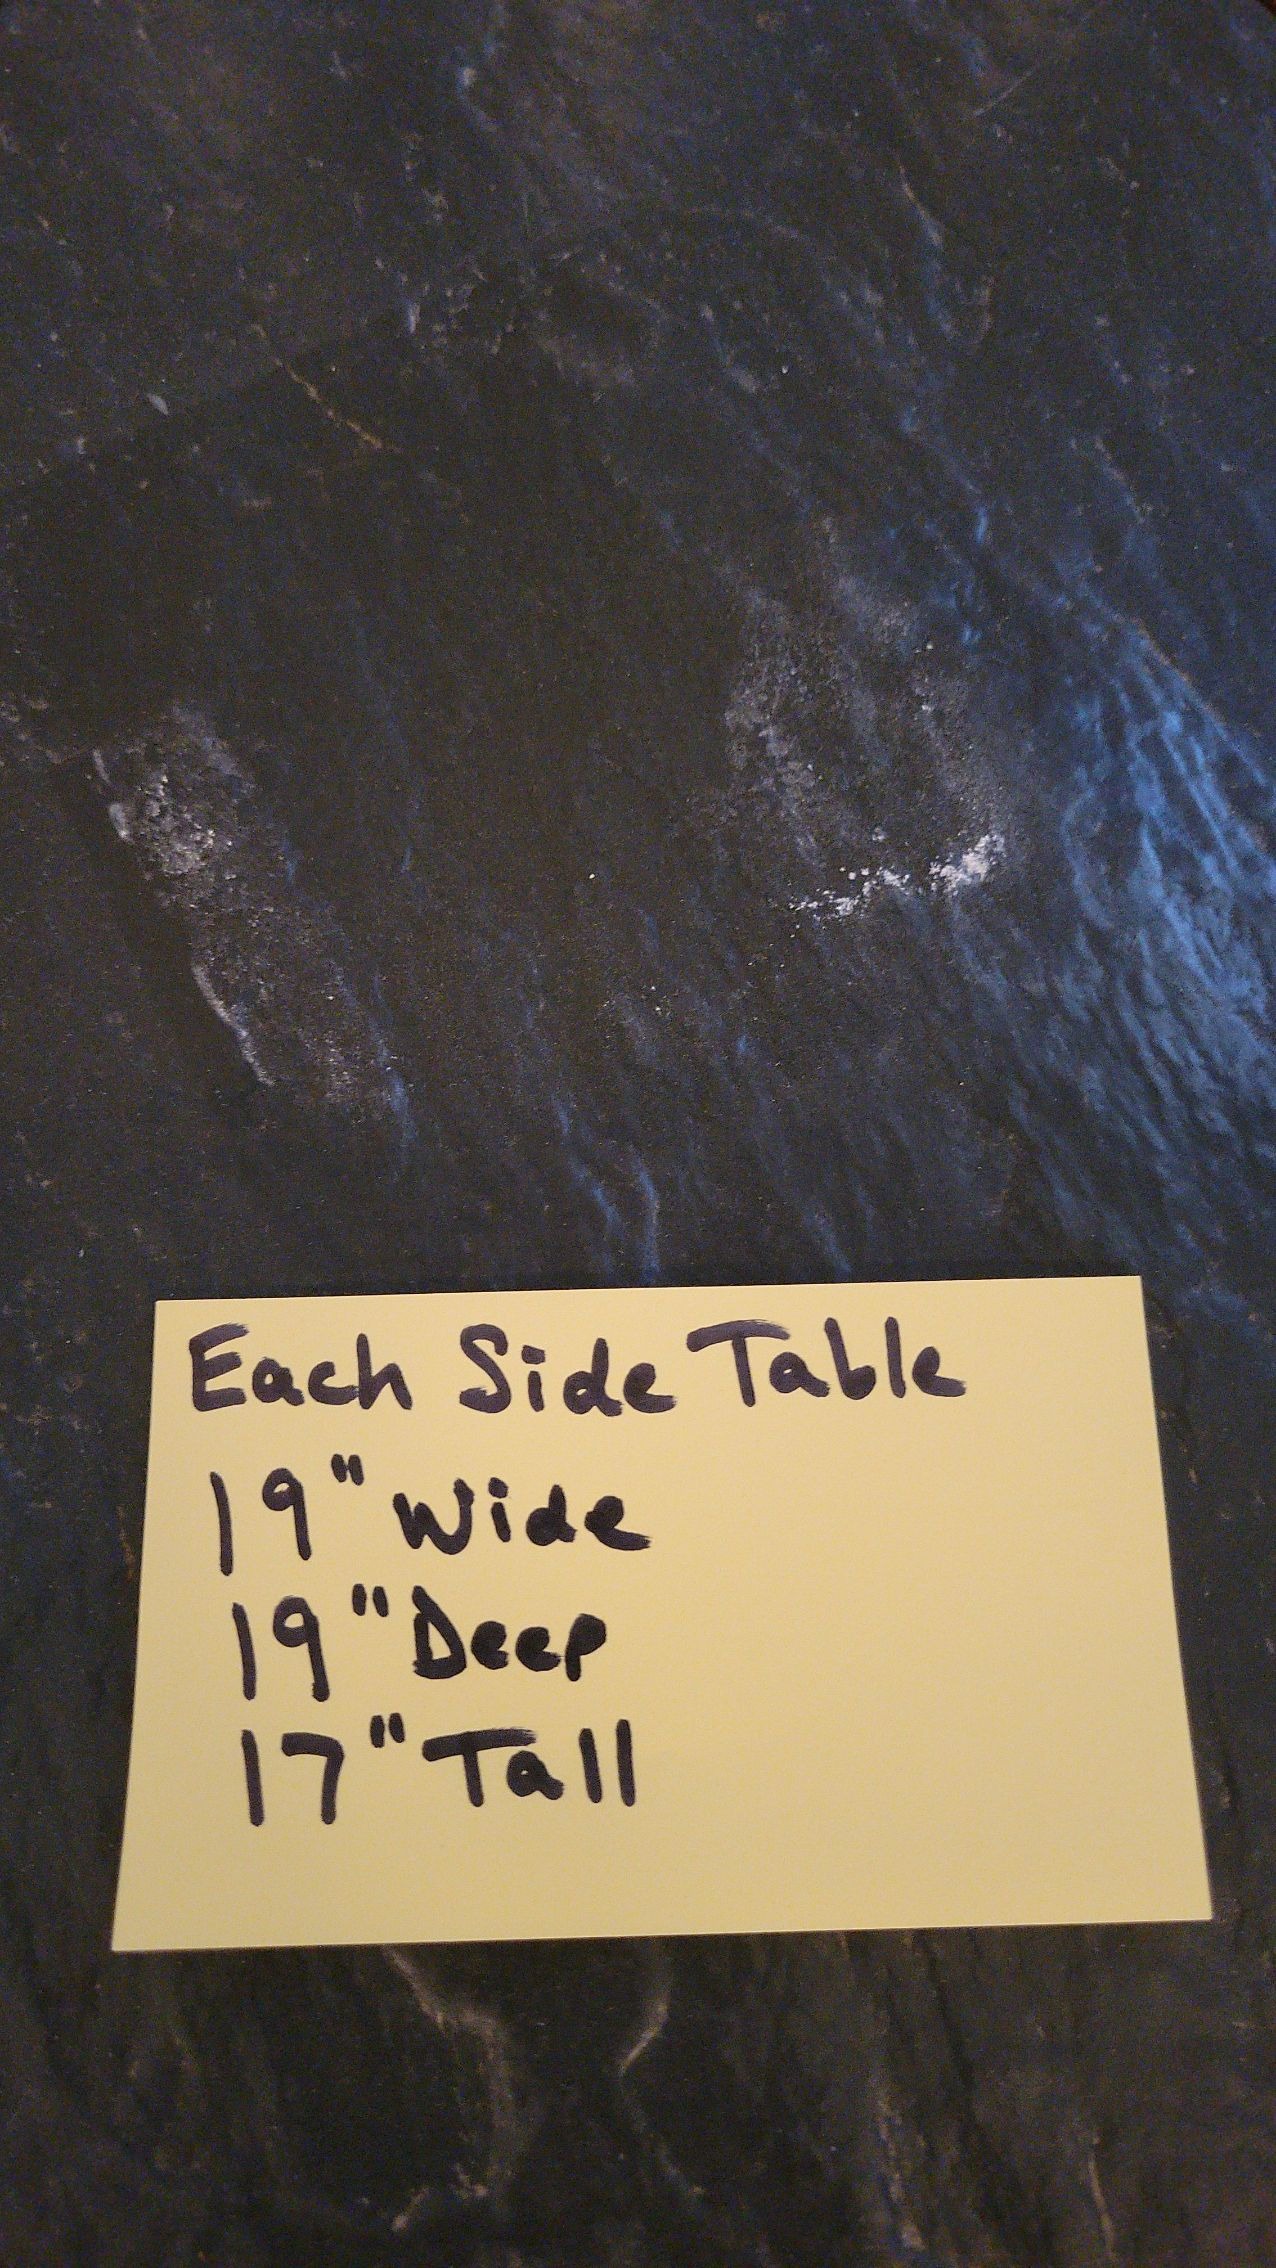 Each Side Table
19" Wide
19" Deep
17" Tall